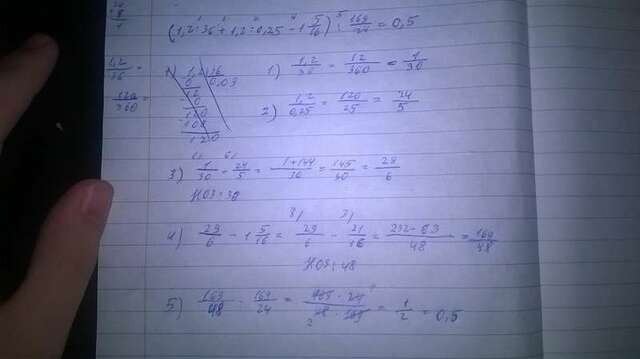 (1,2:36+1,2:0,25-1 5/16) : 169/24 = 0,5
1) 1,2/36 = 12/360 = 1/30
2) 1,2/0,25 = 120/25 = 24/5
3) 1/30 + 24/5 = 1+144/30 = 145/30 = 29/6
НОЗ=30
4) 29/6 - 1 5/16 = 29/6 - 21/16 = 232-63/48 = 169/48
НОЗ=48
5) 169/48 : 169/24 = 169·24/48·169 = 1/2 = 0,5